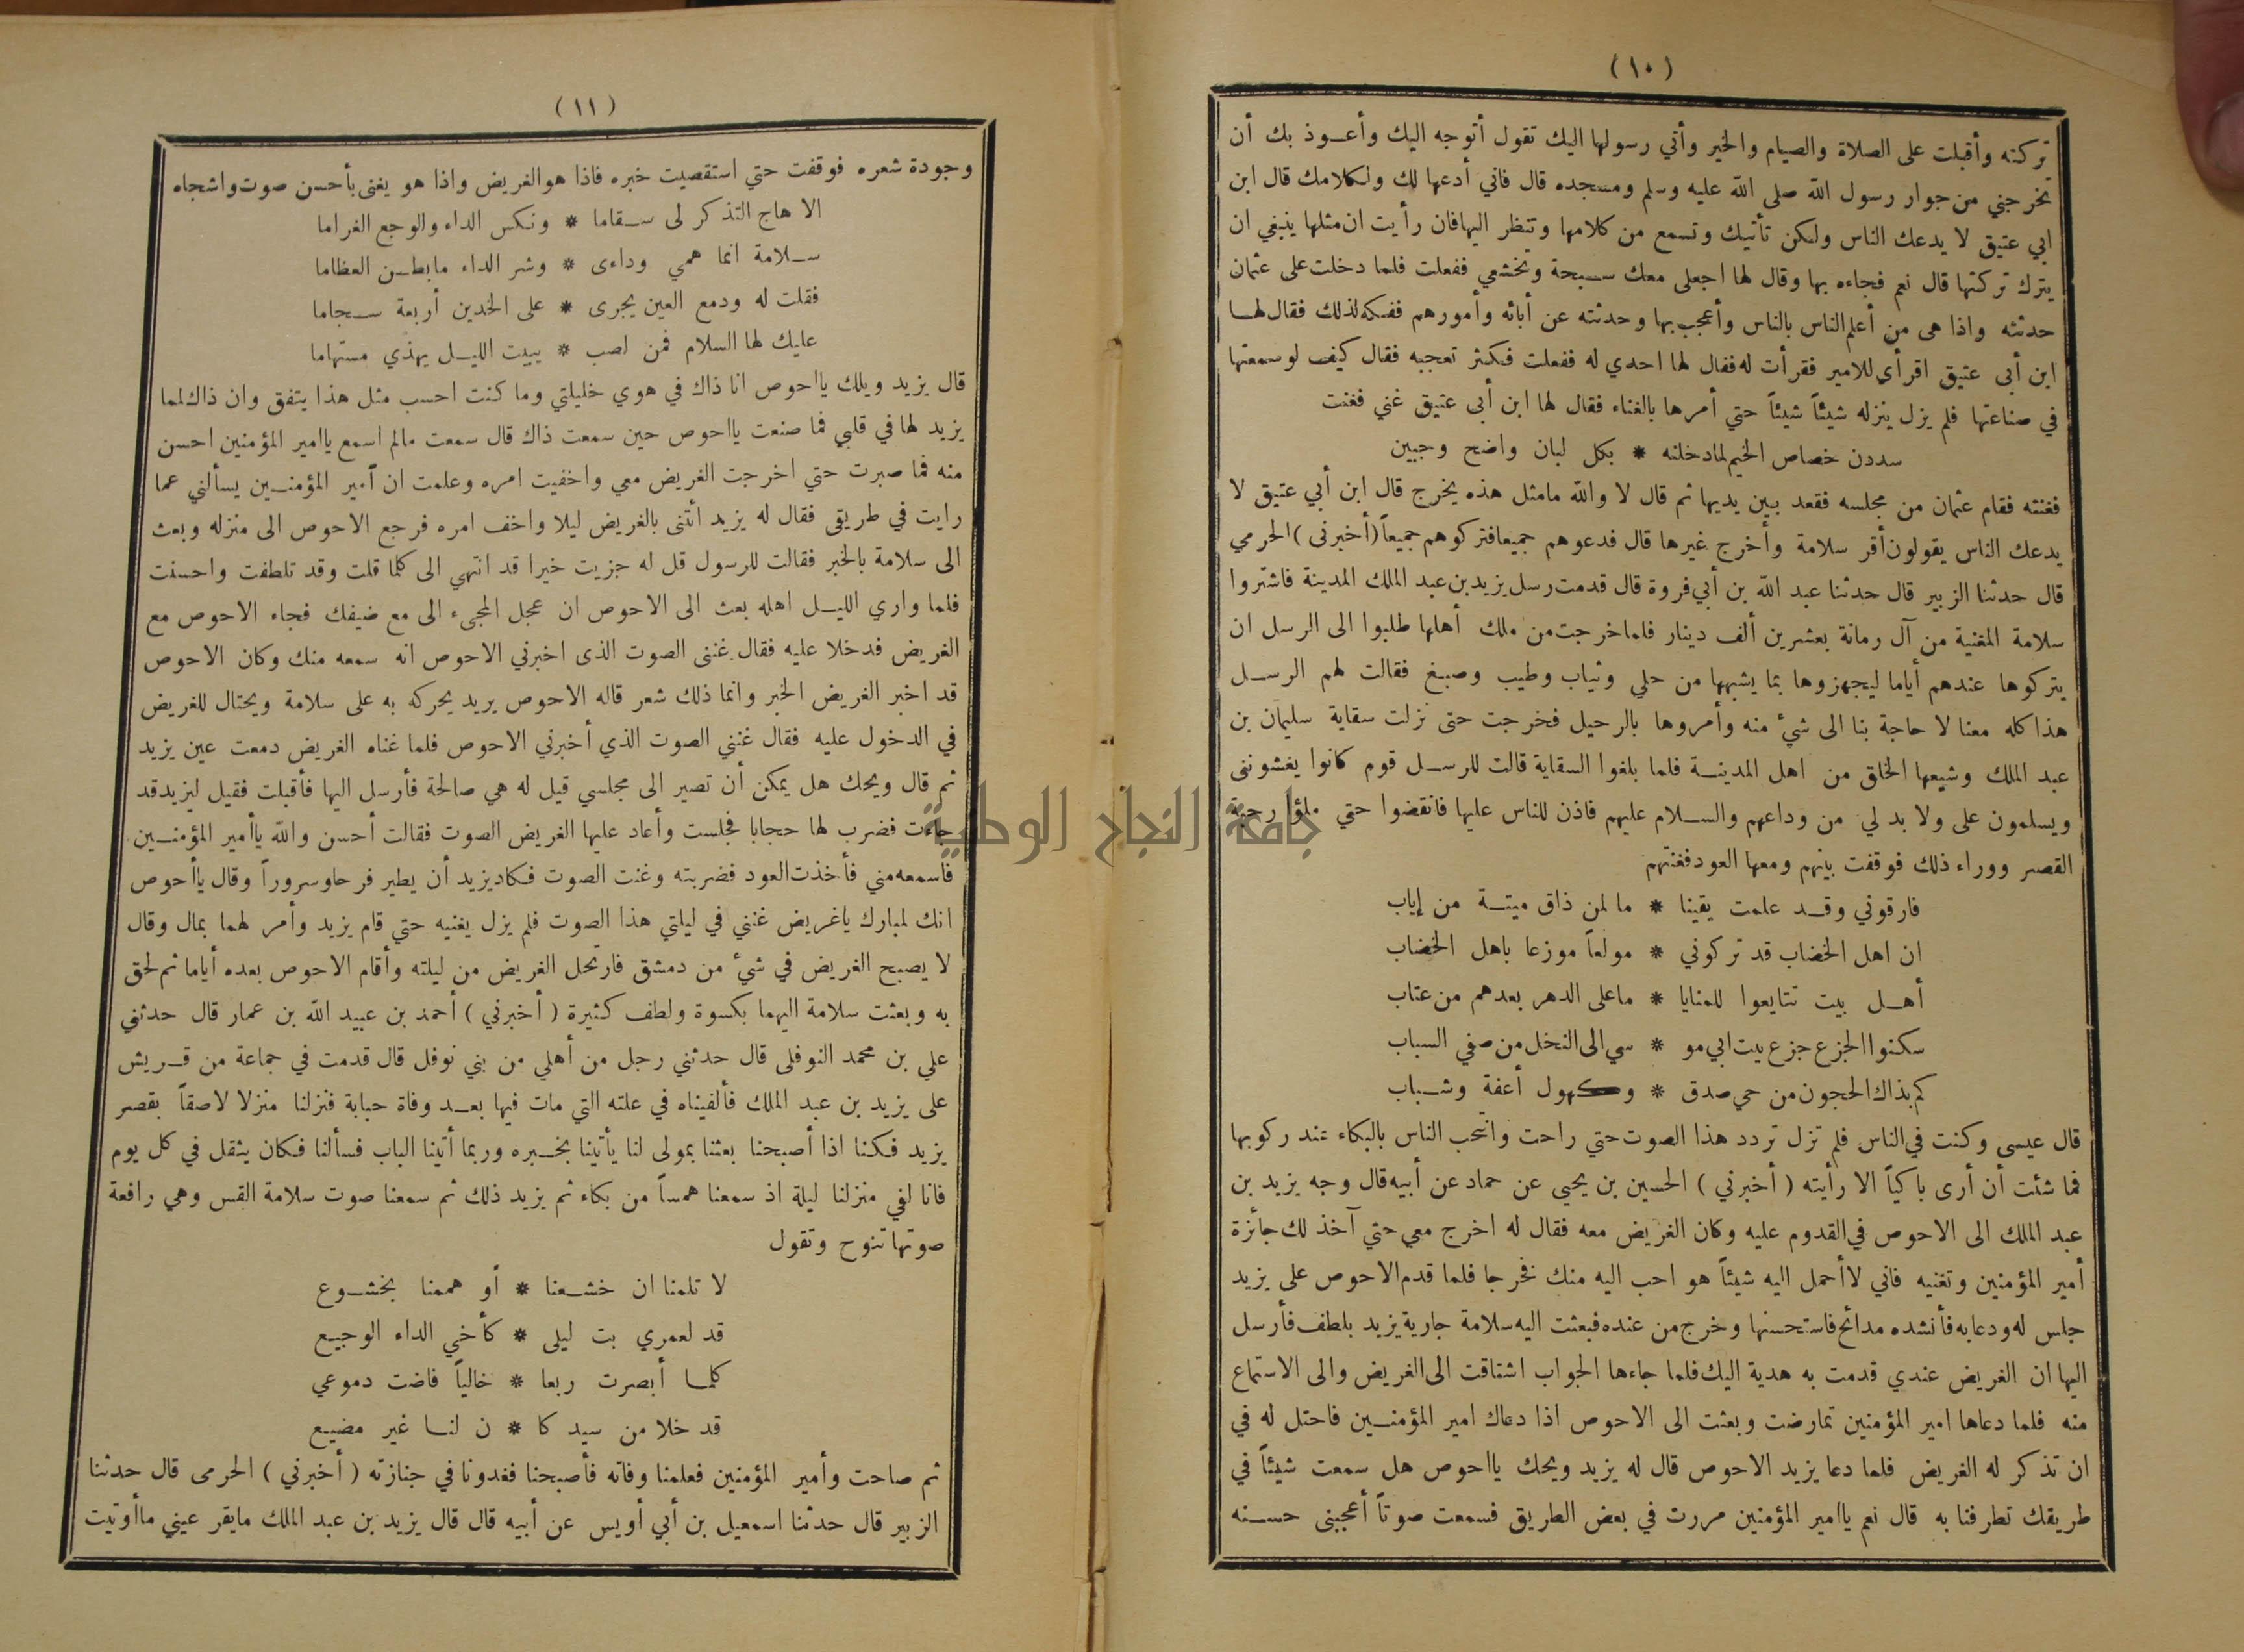 (١٠)
تركته وأقبلت على الصلاة والصيام والخير وأتي رسولها اليك تقول أتوجه اليك وأعـوذ بك أن
تخرجني من جوار رسول الله صلى الله عليه وسلم ومسجده قال فاني أدعها لك ولكلامك قال ابن
ابي عتيق لا يدعك الناس ولكن تأتيك وتسمع من كلامها وتنظر اليها فان رأيت ان مثلها ينبغي ان
يترك تركتها قال نعم فجاءه بها وقال لها اجعلى معك سبحة وتخشعي ففعلت فلما دخلت على عثمان
حدثته واذا هى من أعلم الناس بالناس وأعجب بها وحدثته عن أبائه وأمورهم ففكه لذلك فقال لها
ابن أبى عتيق اقرأي للامير فقرأت له فقال لها احدي له ففعلت فكثر تعجبه فقال كيف لو سمعتها
في صناعتها فلم يزل ينزله شيئاً شيئاً حتي أمرها بالغناء فقال لها ابن أبى عتيق غني فغنت
سددن خصاص الخيم لما دخلنه * بكل لبان واضح وجبين
فغنته فقام عثمان من مجلسه فقعد بين يديها ثم قال لا والله مامثل هذه يخرج قال ابن أبي عتيق لا
يدعك الناس يقولون أقر سلامة وأخرج غيرها قال فدعوهم جميعا فتركوهم جميعاً (أخبرنى) الحرمي
قال حدثنا الزبير قال حدثنا عبد الله بن أبي فروة قال قدمت رسل يزيد بن عبد الملك المدينة فاشتروا
سلامة المغنية من آل رمانة بعشرين ألف دينار فلما خرجت من ملك أهلها طلبوا الى الرسل ان
يتركوها عندهم أياما ليجهزوها بما يشبهها من حلي وثياب وطيب وصبغ فقالت لهم الرسل
هذا كله معنا لا حاجة بنا الى شيء منه وأمروها بالرحيل فخرجت حتى نزلت سقاية سليمان بن
عبد الملك وشيعها الخلق من اهل المدينة فلما بلغوا السقاية قالت للرسل قوم كانوا يغشوننى
ويسلمون على ولا بد لي من وداعهم والسلام عليهم فاذن للناس عليها فانقضوا حتي ملؤا رحبة
القصر ووراء ذلك فوقفت بينهم ومعها العود فغنتهم
فارقوني وقد علمت يقينا * ما لمن ذاق ميتة من إياب
ان اهل الخضاب قد تركوني * مولعاً موزعا باهل الخضاب
أهل بيت تتايعوا للمنايا * ما على الدهر بعدهم من عتاب
سكنوا الجزع جزع بيت ابي مو * سي الى النخل من صفي السباب
كم بذاك الحجون من حي صدق * وكهول أعفة وشباب
قال عيسى وكنت في الناس فلم تزل تردد هذا الصوت حتي راحت وانتحب الناس بالبكاء عند ركوبها
فما شئت أن أرى باكياً الا رأيته ( أخبرني ) الحسين بن يحيى عن حماد عن أبيه قال وجه يزيد بن
عبد الملك الى الاحوص في القدوم عليه وكان الغريض معه فقال له اخرج معي حتي آخذ لك جائزة
أمير المؤمنين وتغنيه فاني لا أحمل اليه شيئاً هو احب اليه منك فخرجا فلما قدم الاحوص على يزيد
جلس له ودعا به فأنشده مدائح فاستحسنها وخرج من عنده فبعثت اليه سلامة جارية يزيد بلطف فأرسل
اليها ان الغريض عندي قدمت به هدية اليك فلما جاءها الجواب اشتاقت الى الغريض والى الاستماع
منه فلما دعاها امير المؤمنين تمارضت وبعثت الى الاحوص اذا دعاك امير المؤمنين فاحتل له في
ان تذكر له الغريض فلما دعا يزيد الاحوص قال له يزيد ويحك يااحوص هل سمعت شيئاً في
طريقك تطرفنا به قال نعم ياامير المؤمنين مررت في بعض الطريق فسمعت صوتاً أعجبنى حسنه
(١١)
وجودة شعره فوقفت حتي استقصيت خبره فاذا هو الغريض واذا هو يغنى بأحسن صوت واشجاه
الا هاج التذكر لى سقاما * ونكس الداء والوجع الغراما
سلامة انما همي وداءى * وشر الداء ما بطن العظاما
فقلت له ودمع العين يجرى * على الخدين أربعة سجاما
عليك لها السلام فمن لصب * يبيت الليل يهذي مستهاما
قال يزيد ويلك يااحوص انا ذاك في هوي خليلتي وما كنت احسب مثل هذا يتفق وان ذاك لمما
يزيد لها في قلبي فما صنعت يااحوص حين سمعت ذاك قال سمعت مالم اسمع ياامير المؤمنين احسن
منه فما صبرت حتي اخرجت الغريض معي واخفيت امره وعلمت ان أمير المؤمنين يسألني عما
رايت في طريقى فقال له يزيد ائتنى بالغريض ليلا واخف امره فرجع الاحوص الى منزله وبعث
الى سلامة بالخبر فقالت للرسول قل له جزيت خيرا قد انتهي الى كلما قلت وقد تلطفت واحسنت
فلما واري الليل اهله بعث الى الاحوص ان عجل المجىء الى مع ضيفك فجاء الاحوص مع
الغريض فدخلا عليه فقال غننى الصوت الذى اخبرني الاحوص انه سمعه منك وكان الاحوص
قد اخبر الغريض الخبر وانما ذلك شعر قاله الاحوص يريد يحركه به على سلامة ويحتال للغريض
في الدخول عليه فقال غنني الصوت الذي أخبرني الاحوص فلما غناه الغريض دمعت عين يزيد
ثم قال ويحك هل يمكن أن تصير الى مجلسي قيل له هي صالحة فأرسل اليها فأقبلت فقيل ليزيد قد
جاءت فضرب لها حجابا فجلست وأعاد عليها الغريض الصوت فقالت أحسن والله ياأمير المؤمنين
فاسمعه مني فأخذت العود فضربته وغنت الصوت فكاد يزيد أن يطير فرحا وسروراً وقال ياأحوص
انك لمبارك ياغريض غنني في ليلتي هذا الصوت فلم يزل يغنيه حتي قام يزيد وأمر لهما بمال وقال
لا يصبح الغريض في شيء من دمشق فارتحل الغريض من ليلته وأقام الاحوص بعده أياما ثم لحق
به وبعثت سلامة اليهما بكسوة ولطف كثيرة ( أخبرني ) أحمد بن عبيد الله بن عمار قال حدثني
علي بن محمد النوفلى قال حدثني رجل من أهلي من بني نوفل قال قدمت في جماعة من قريش
على يزيد بن عبد الملك فألفيناه في علته التي مات فيها بعد وفاة حبابة فنزلنا منزلا لاصقاً بقصر
يزيد فكنا اذا أصبحنا بعثنا بمولى لنا يأتينا بخبره وربما أتينا الباب فسألنا فكان يثقل في كل يوم
فانا لفي منزلنا ليلة اذ سمعنا همساً من بكاء ثم يزيد ذلك ثم سمعنا صوت سلامة القس وهي رافعة
صوتها تنوح وتقول
لا تلمنا ان خشعنا * أو هممنا بخشوع
قد لعمري بت ليلى * كأخي الداء الوجيع
كلما أبصرت ربعا * خالياً فاضت دموعي
قد خلا من سيد كا * ن لنا غير مضيع
ثم صاحت وأمير المؤمنين فعلمنا وفاته فأصبحنا فغدونا في جنازته ( أخبرني ) الحرمى قال حدثنا
الزبير قال حدثنا اسمعيل بن أبي أويس عن أبيه قال قال يزيد بن عبد الملك مايقر عيني ماأوتيت
جامعة النجاح الوطنية